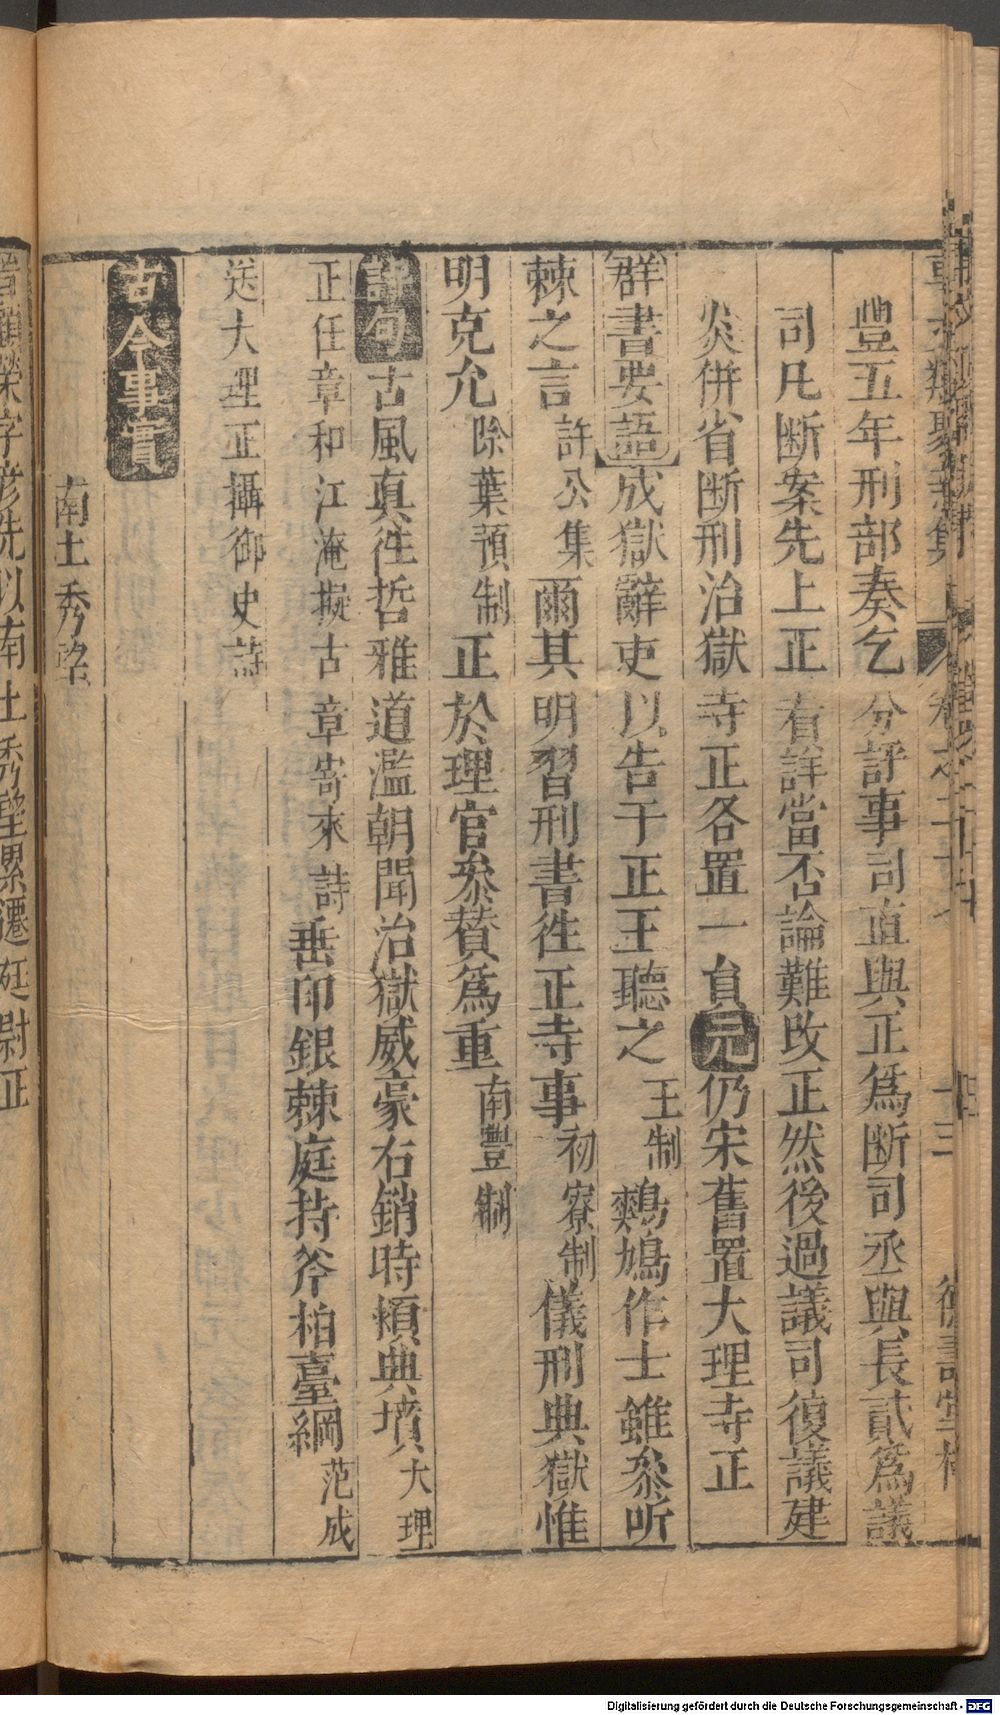 豐五年刑部奏乞分評事司直與正爲断司丞與長貳爲議
司凡断案先上正看詳當否論難改正然後過議司復議建
炎併省断刑治獄寺正各置一員元仍宋舊置大理寺正
群書要語成獄辭吏以告于正王聽之王制鷞鳩作士雖參听
棘之言許公集爾其明習刑書徃正寺事初寮制儀刑典獄惟
明克允除葉預制正於理官參賛爲重南豐制
詩句古風真徃哲雅道濫朝聞治獄威豪右銷時頪典墳大理
正任章和江淹擬古章寄來詩垂印銀棘庭持斧柏臺綱范成
送大理正攝御史詩
古今事實
南土秀望
字彦先以南土秀望累遷廷尉正
Digitalisierung gefördert durch die Deutsche Forschungsgemeinschaft - DFG